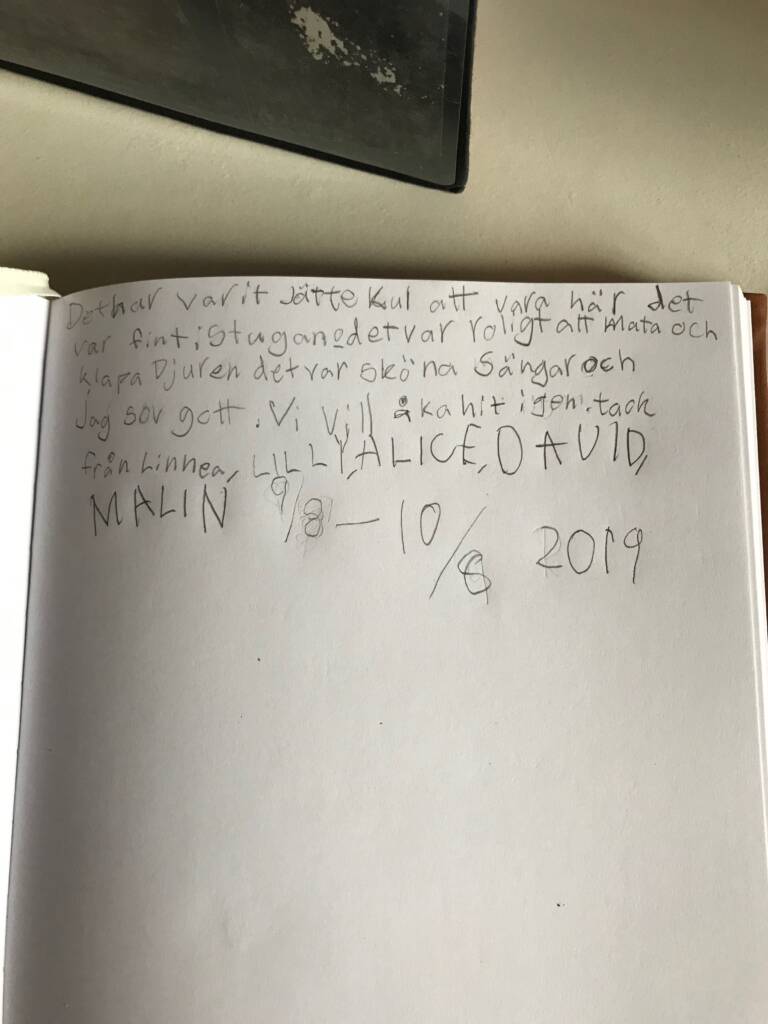 Det har varit Jätte kul att vara här det
var fint i Stugan det var roligt att mata och
klapa Djuren det var sköna Sängar och
Jag sov gott. Vi vill åka hit igen. tack
från Linnea, LILLY, ALICE, DAVID,
MALIN 9/8 – 10/8 2019